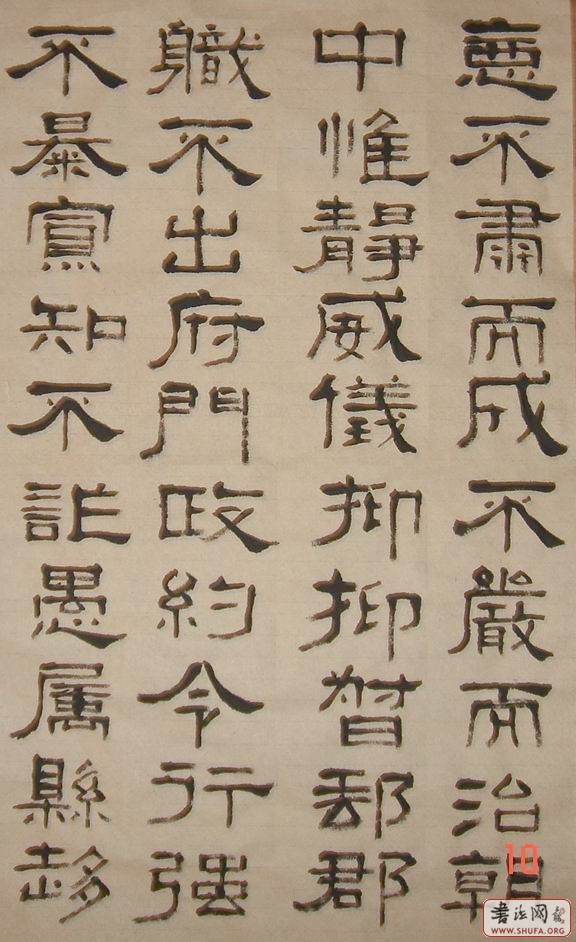 惡不肅而成不嚴而治朝
中惟靜威儀抑抑督郵郡
職不出府門政約令行強
不暴寡知不詐愚属縣趍
10
书法网
WWW.SHUFA.ORG